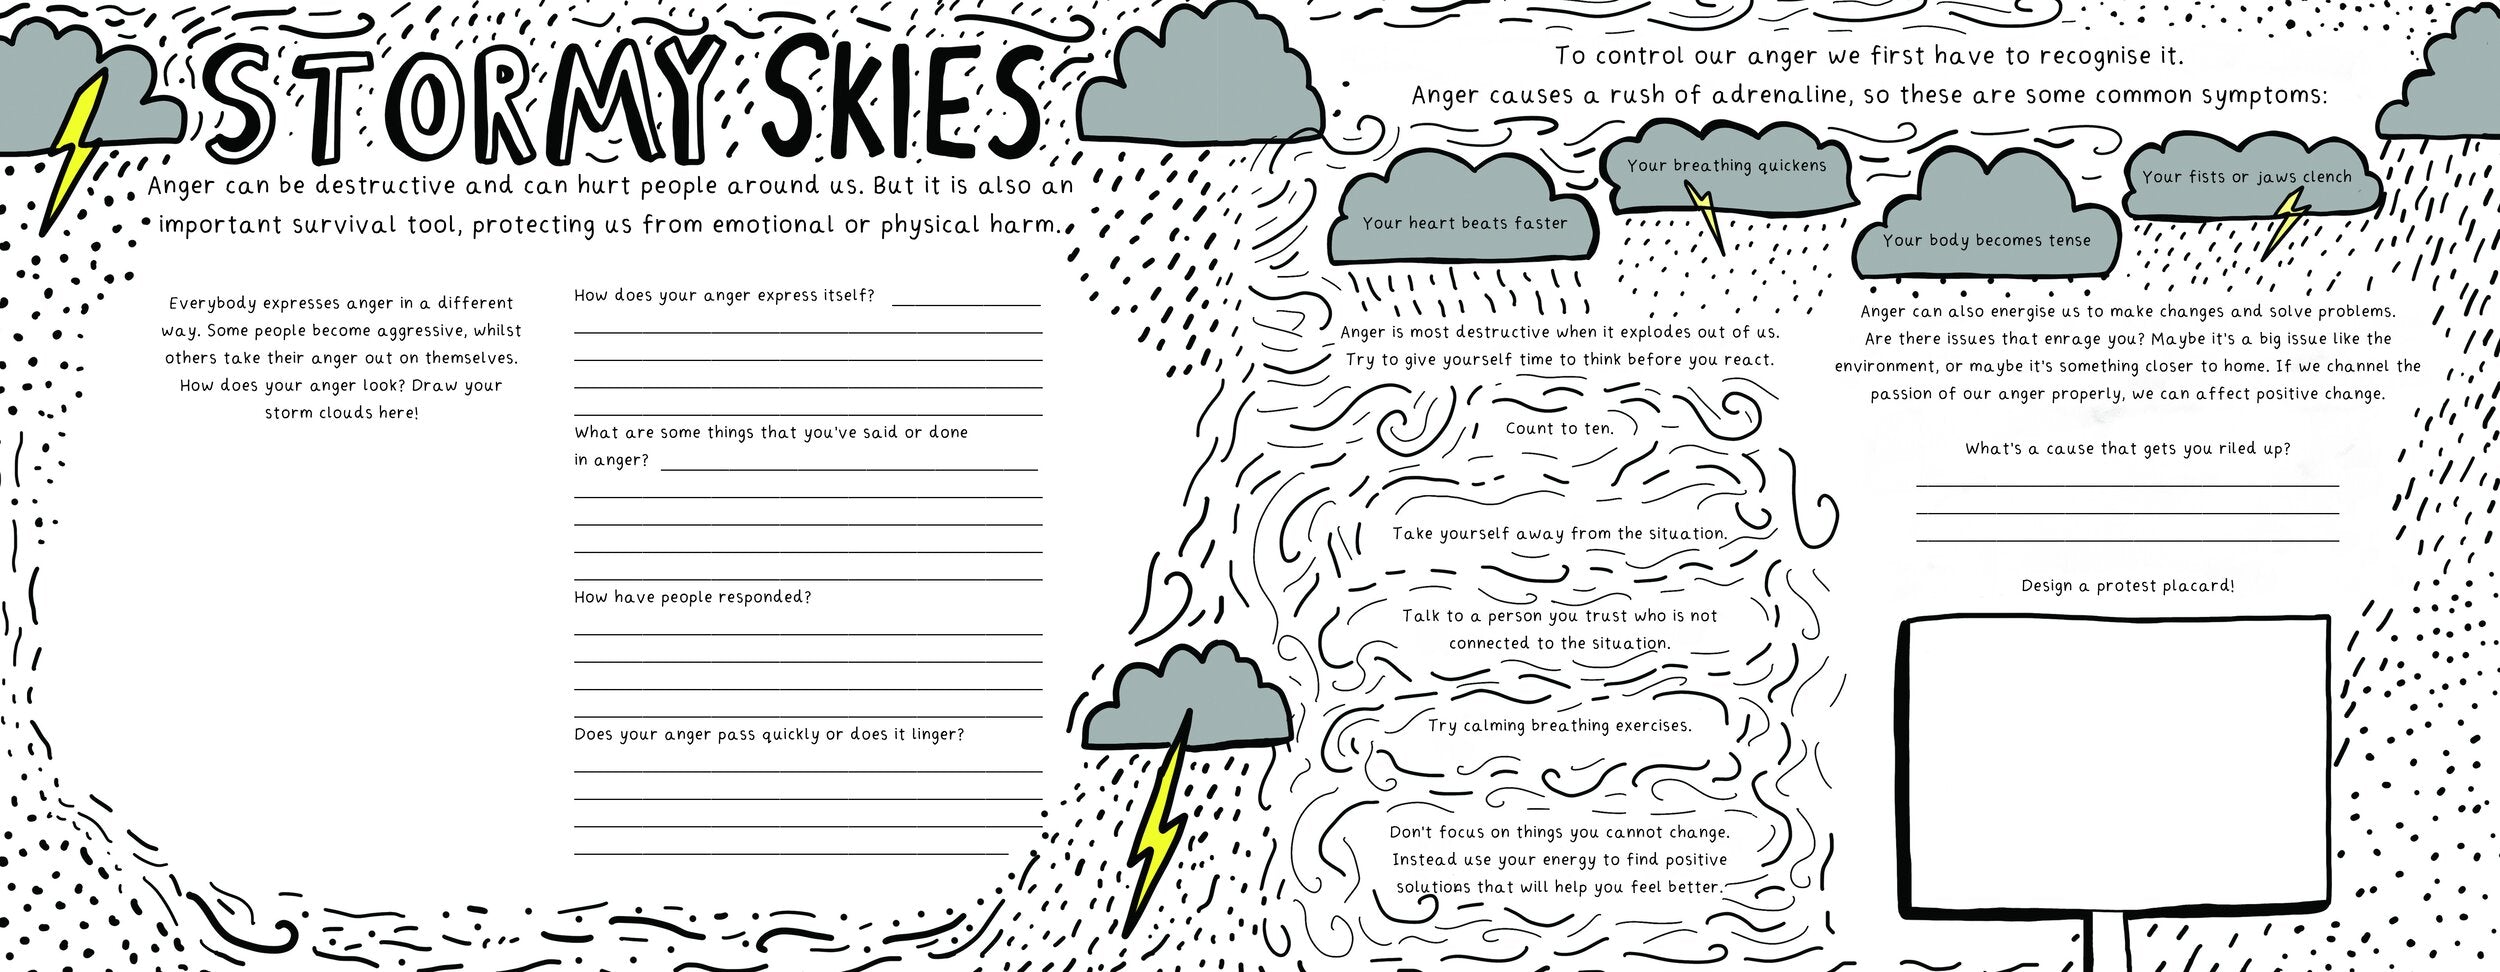 STORMY SKIES
Anger can be destructive and can hurt people around us. But it is also an
important survival tool, protecting us from emotional or physical harm.
Everybody expresses anger in a different
way. Some people become aggressive, whilst
others take their anger out on themselves.
How does your anger look? Draw your
storm clouds here!
How does your anger express itself?
What are some things that you've said or done
in anger?
How have people responded?
Does your anger pass quickly or does it linger?
To control our anger we first have to recognise it.
Anger causes a rush of adrenaline, so these are some common symptoms:
Your heart beats faster
Your breathing quickens
Your body becomes tense
Your fists or jaws clench
Anger is most destructive when it explodes out of us.
Try to give yourself time to think before you react.
Count to ten.
Take yourself away from the situation.
Talk to a person you trust who is not
connected to the situation.
Try calming breathing exercises.
Don't focus on things you cannot change.
Instead use your energy to find positive
solutions that will help you feel better.
Anger can also energise us to make changes and solve problems.
Are there issues that enrage you? Maybe it's a big issue like the
environment, or maybe it's something closer to home. If we channel the
passion of our anger properly, we can affect positive change.
What's a cause that gets you riled up?
Design a protest placard!